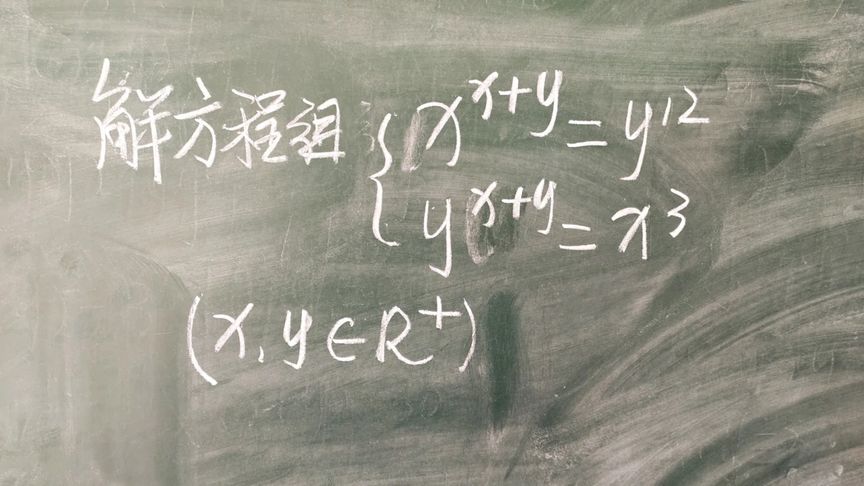 解方程组 { x^{x+y} = y^{12}
y^{x+y} = x^3
(x, y ∈ R^+)